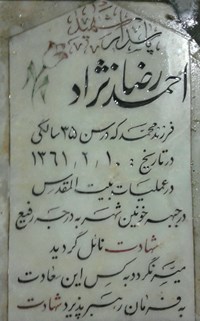 پاسدار شهید
احمد رضا نژاد
فرزند محمد که در سن ۳۵ سالگی
در تاریخ: ۱۰ ر ۱ ر ۱۳۶۱
در عملیات بیت المقدس
در جبهه خونین شهر به درجه رفیع
شهادت نائل گردید
میسر نگردد به کس این سعادت
به فرمان رهبر پذیرد شهادت